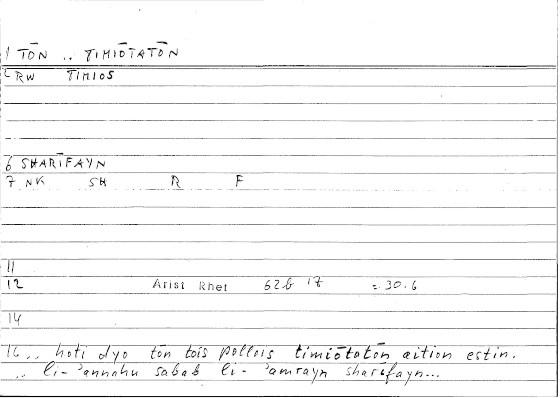 1 TŌN .. TIMIŌTATŌN
2 RW TIMIOS
6 SHARĪFAYN
7 NK SH R F
11
12 Arist Rhet 62b 17 = 30.6
14
16 .. hoti dyo tōn tois pollois timiōtatōn aition estin.
.. li-'annahu sabab li-'amrayn sharīfayn...